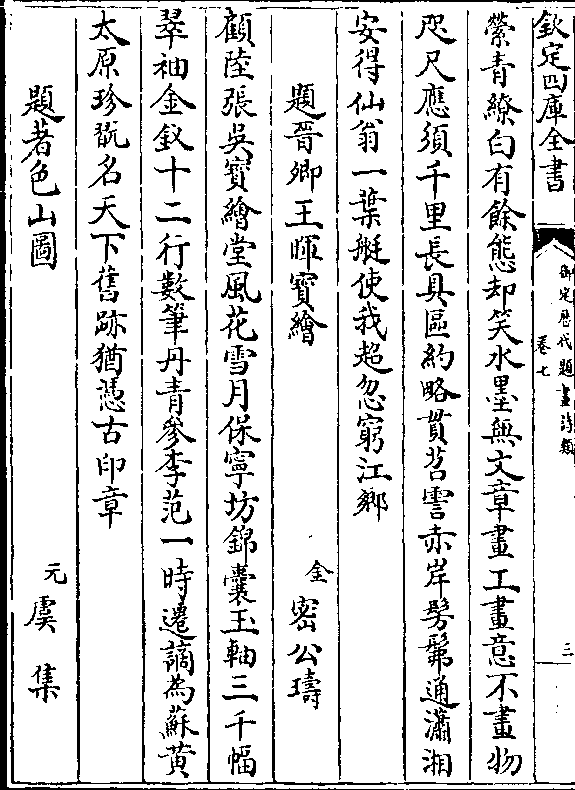 欽定四庫全書
御定歷代題畫詩類
卷七
三
縈青繚白有餘態却笑水墨無文章畫工畫意不畫物
咫尺應須千里長具區約略貫苕霅赤岸髣髴通瀟湘
安得仙翁一葉艇使我超忽窮江鄉
題晉卿王暉寶繪 金 密公璹
顧陸張吳寶繪堂風花雪月保寧坊錦囊玉軸三千幅
翠袖金釵十二行數筆丹青參李范一時遷謫為蘇黄
太原珍翫名天下舊跡猶憑古印章
題著色山圖 元 虞集